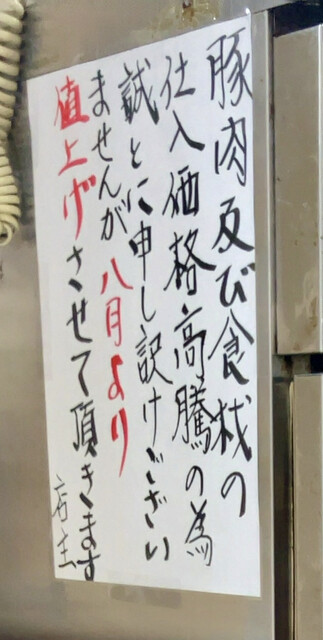 豚肉及び食材の
仕入価格高騰の為
誠とに申し訳けございい
ませんが八月より
値上げさせて頂きます
店主